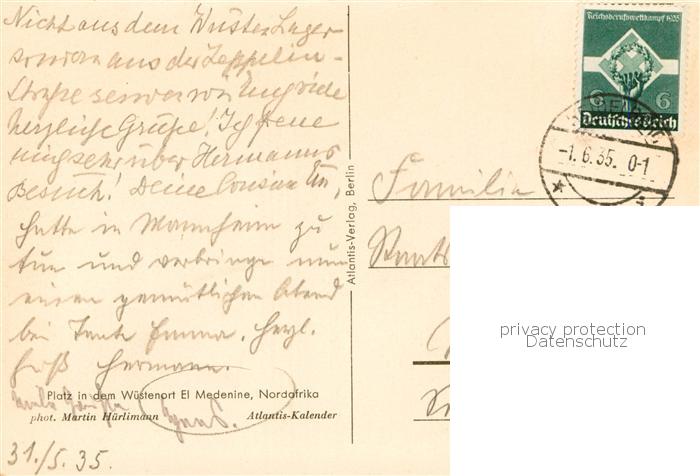 Nicht aus dem Wüsten Lager
sondern aus der Zeppelin-
Straße senden wir Euch viele
herzliche Grüße! Ich freue
mich sehr über Hermanns
Besuch! Deine Cousine
hatte in Mannheim zu
tun und verbringe nun
einen gemütlichen Abend
bei Tante Emma. Herzl.
Gruß Hermann.
Platz in dem Wüstenort El Medenine, Nordafrika
phot. Martin Hürlimann Atlantis-Kalender
31./5. 35.
Atlantis-Verlag, Berlin
Reichsberufswettkampf 1935
6 6
Deutsches Reich
-1.6.35. 0-1
Familie
Staats
privacy protection
Datenschutz